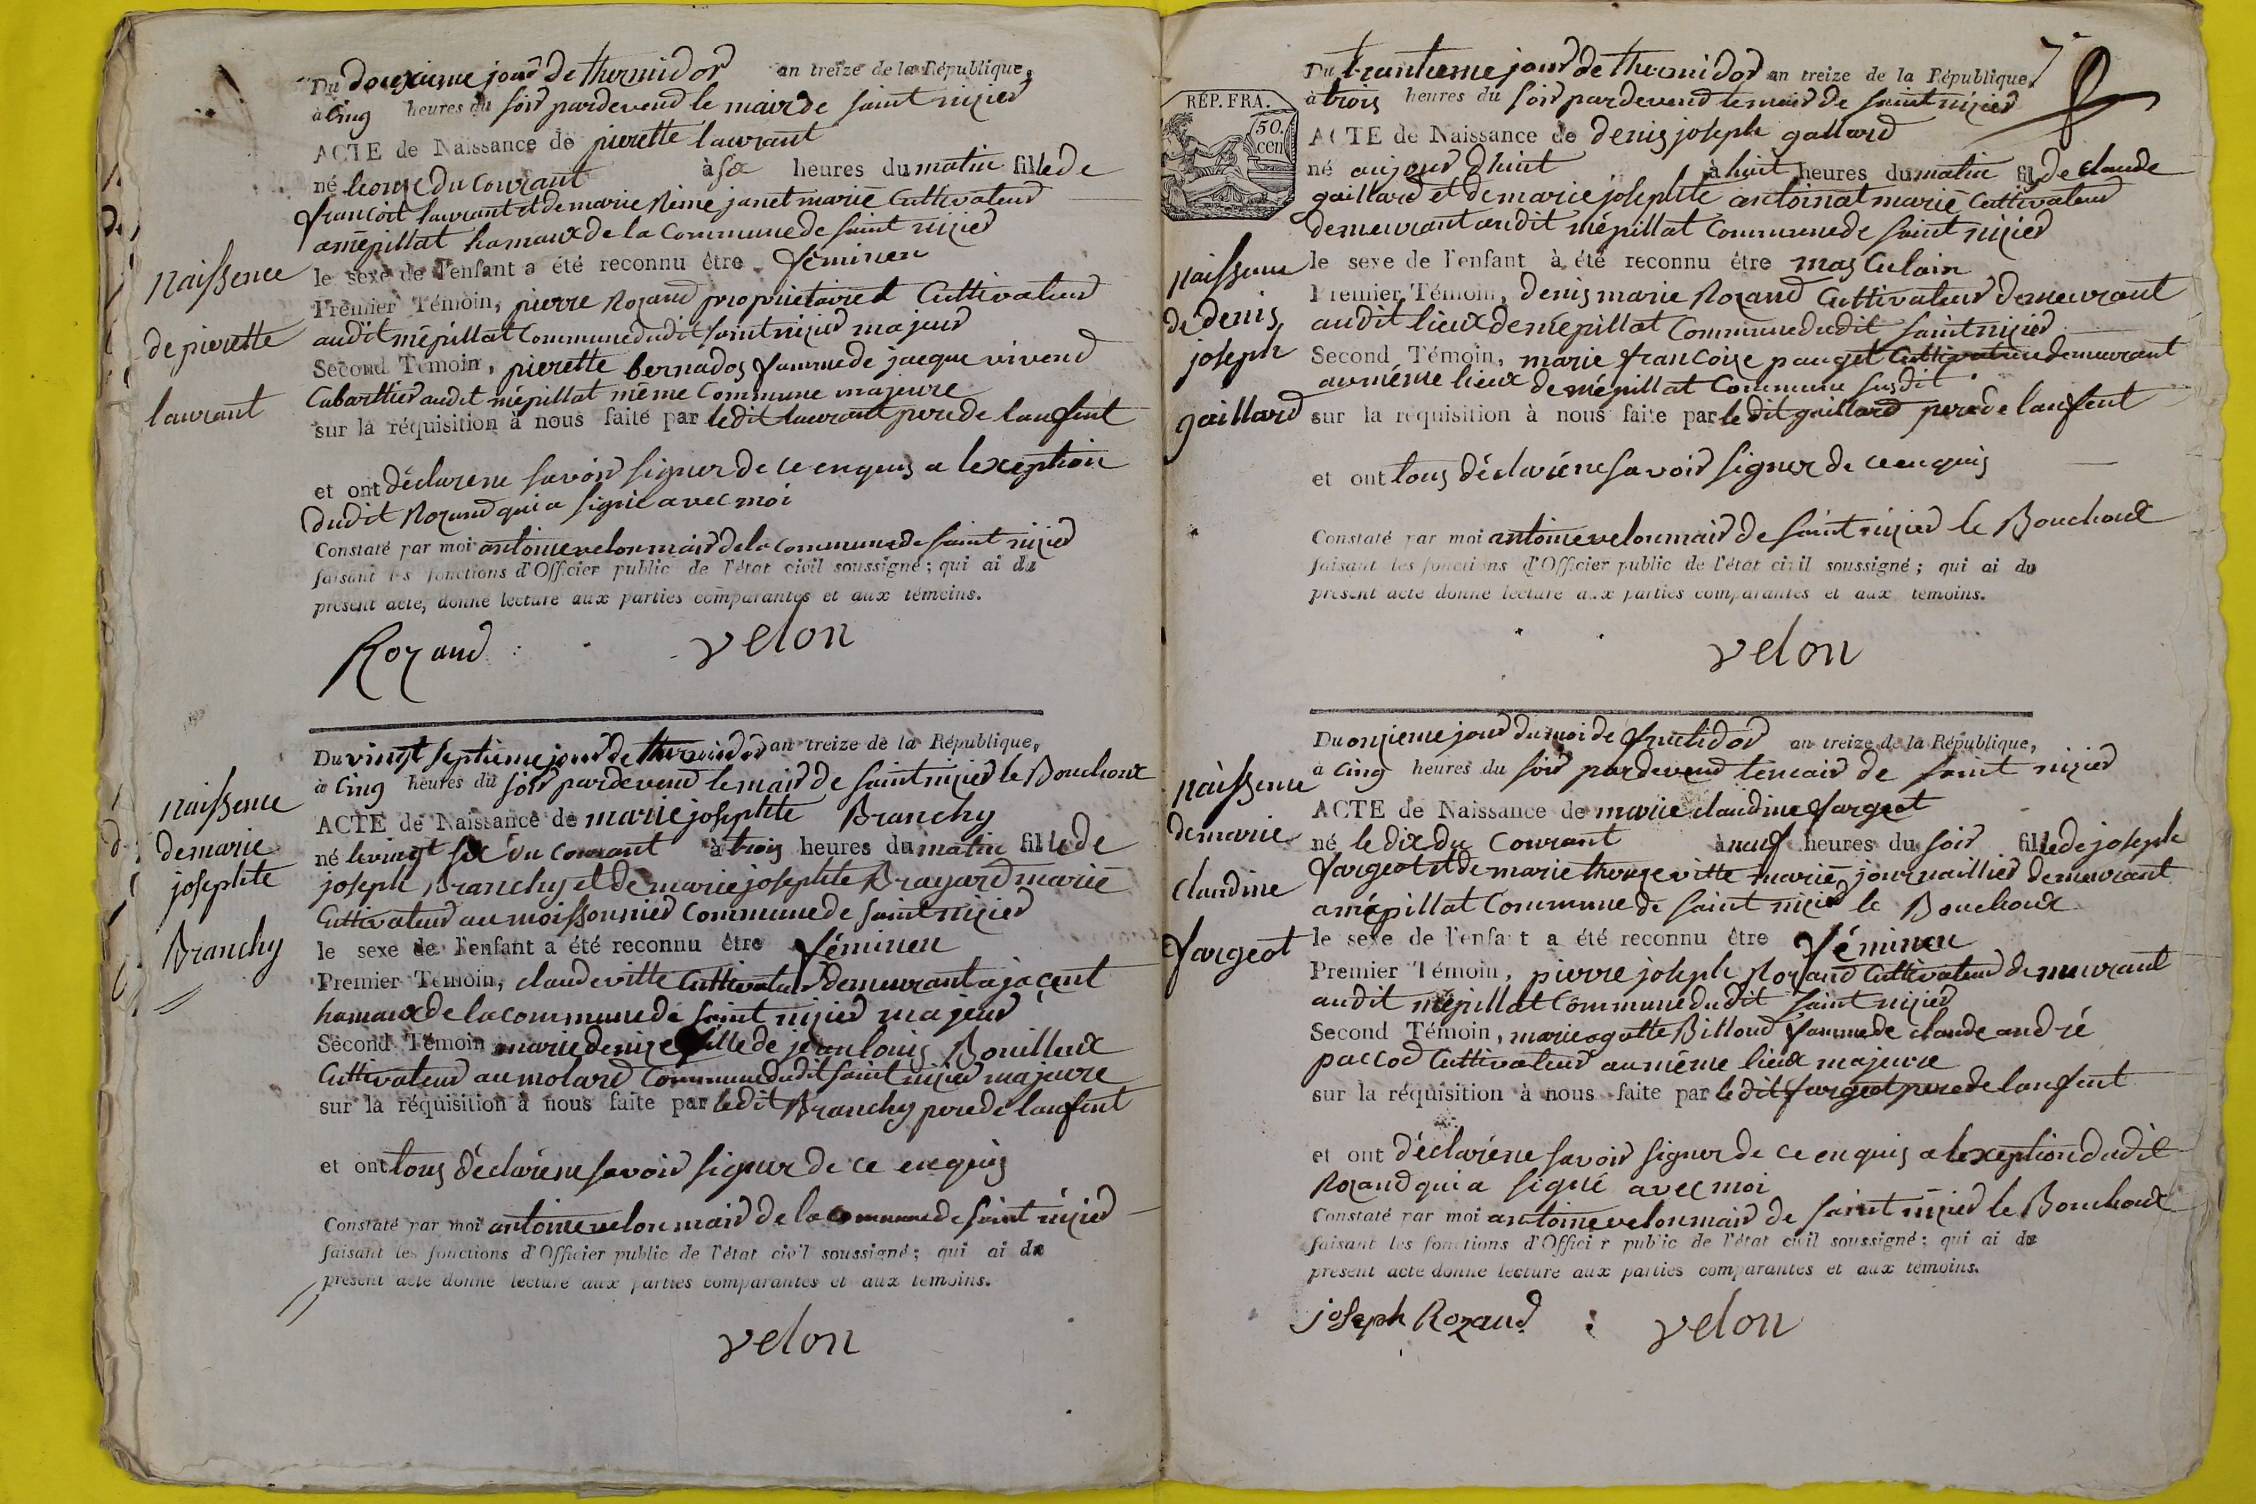 Du douxieme jour de thermidor an treize de la République,
à cinq heures du soir pardevend le mair de saint nizier
ACTE de Naissance de pierette laurant
né leonze du courant à six heures du matin fille de
francoit laurant et de marie Reine janet marié Cultivateur
amépillat hamaux de la Commune de saint nizier
le sexe de l'enfant a été reconnu être féminen
Premier Témoin, pierre Rozand proprietaire et Cultivateur
audit mépillat Commune dudit saint nizier majeur
Second Témoin, pierette bernados famme de jacque vivend
Cabarttier audit mépillat même Commune majeure
sur la réquisition à nous faite par ledit laurant pere de lanfent
et ont déclarene savoir signer de ce enquis a lexception
dudit Rozand qui a signé avec moi
Constaté par moi antoine velon mair de la commune de saint nizier
faisant les fonctions d'Officier public de l'état civil soussigné; qui ai du
présent acte, donné lecture aux parties comparantes et aux témoins.
Rozand velon
Naissence
de pierette
laurant
Du vingt septieme jour de thermidor an treize de la République,
à cinq heures du soir pardevend le mair de saint nizier le Bouchoux
ACTE de Naissance de marie josephte Branchy
né levingt six du courant à trois heures du matin fille de
joseph Branchy et de marie josephte Brayard marié
Cultivateur au moissonnier Commune de saint nizier
le sexe de l'enfant a été reconnu être féminen
Premier Témoin, claude vitte Cultivateur demeurant a jaçent
hamaux de la commune de saint nizier majeur
Second Témoin marie denize fille de jean louis Bouilleux
Cultivateur au molard Commune dudit saint nizier majeure
sur la réquisition à nous faite par ledit Branchy pere de lanfent
et ont tous déclaréne savoir signer de ce enquis
Constaté par moi antoine velon mair de la commune de saint nizier
faisant les fonctions d'Officier public de l'état civil soussigné; qui ai du
présent acte donné lecture aux parties comparantes et aux témoins.
velon
Naissence
de marie
josephte
Branchy
7e
RÉP. FRA.
50.
cen
Du trantieme jour de thermidor an treize de la République,
à trois heures du soir pardevend le mair de saint nizier
ACTE de Naissance de denis joseph gallard
né aujourdhuit à huit heures du matin fil de claude
gaillard et de marie josephte antoinat marié Cultivateur
demeurant audit mépillat Commune de saint nizier
le sexe de l'enfant à été reconnu être masculain
Premier Témoin, denis marie Rozand Cultivateur demeurant
audit lieux de mépillat Commune dudit saint nizier
Second Témoin, marie francoise pauget Cultivatrice demeurant
au même lieux de mépillat Commune susdit
sur la réquisition à nous faite par ledit gaillard pere de lanfent
et ont tous déclaréne savoir signer de ce enquis
Constaté par moi antoine velon mair de saint nizier le Bouchoux
faisant les fonctions d'Officier public de l'état civil soussigné; qui ai du
présent acte donné lecture aux parties comparantes et aux témoins.
velon
Naissence
de denis
joseph
gaillard
Du onzieme jour du moi de fructidor an treize de la République,
à cinq heures du soir pardevend lemair de saint nizier
ACTE de Naissance de marie claudine fargeot
né le dix du Courant à neuf heures du soir fille de joseph
fargeot et de marie thereze vitte marié journaillier demeurant
amépillat Commune de saint nizier le Bouchoux
le sexe de l'enfant a été reconnu être féminen
Premier Témoin, pierre joseph Rozand Cultivateur demeurant
audit mépillat Commune dudit saint nizier
Second Témoin, marie agatte Billoud famme de claude andré
paccod Cultivateur au même lieux majeure
sur la réquisition à nous faite par ledit fargeot pere de lanfent
et ont déclaréne savoir signer de ce enquis a lexception dudit
Rozand qui a signé avec moi
Constaté par moi antoine velon mair de saint nizier le Bouchoux
faisant les fonctions d'Officier public de l'état civil soussigné; qui ai du
présent acte donné lecture aux parties comparantes et aux témoins.
joseph Rozand velon
Naissence
de marie
claudine
fargeot